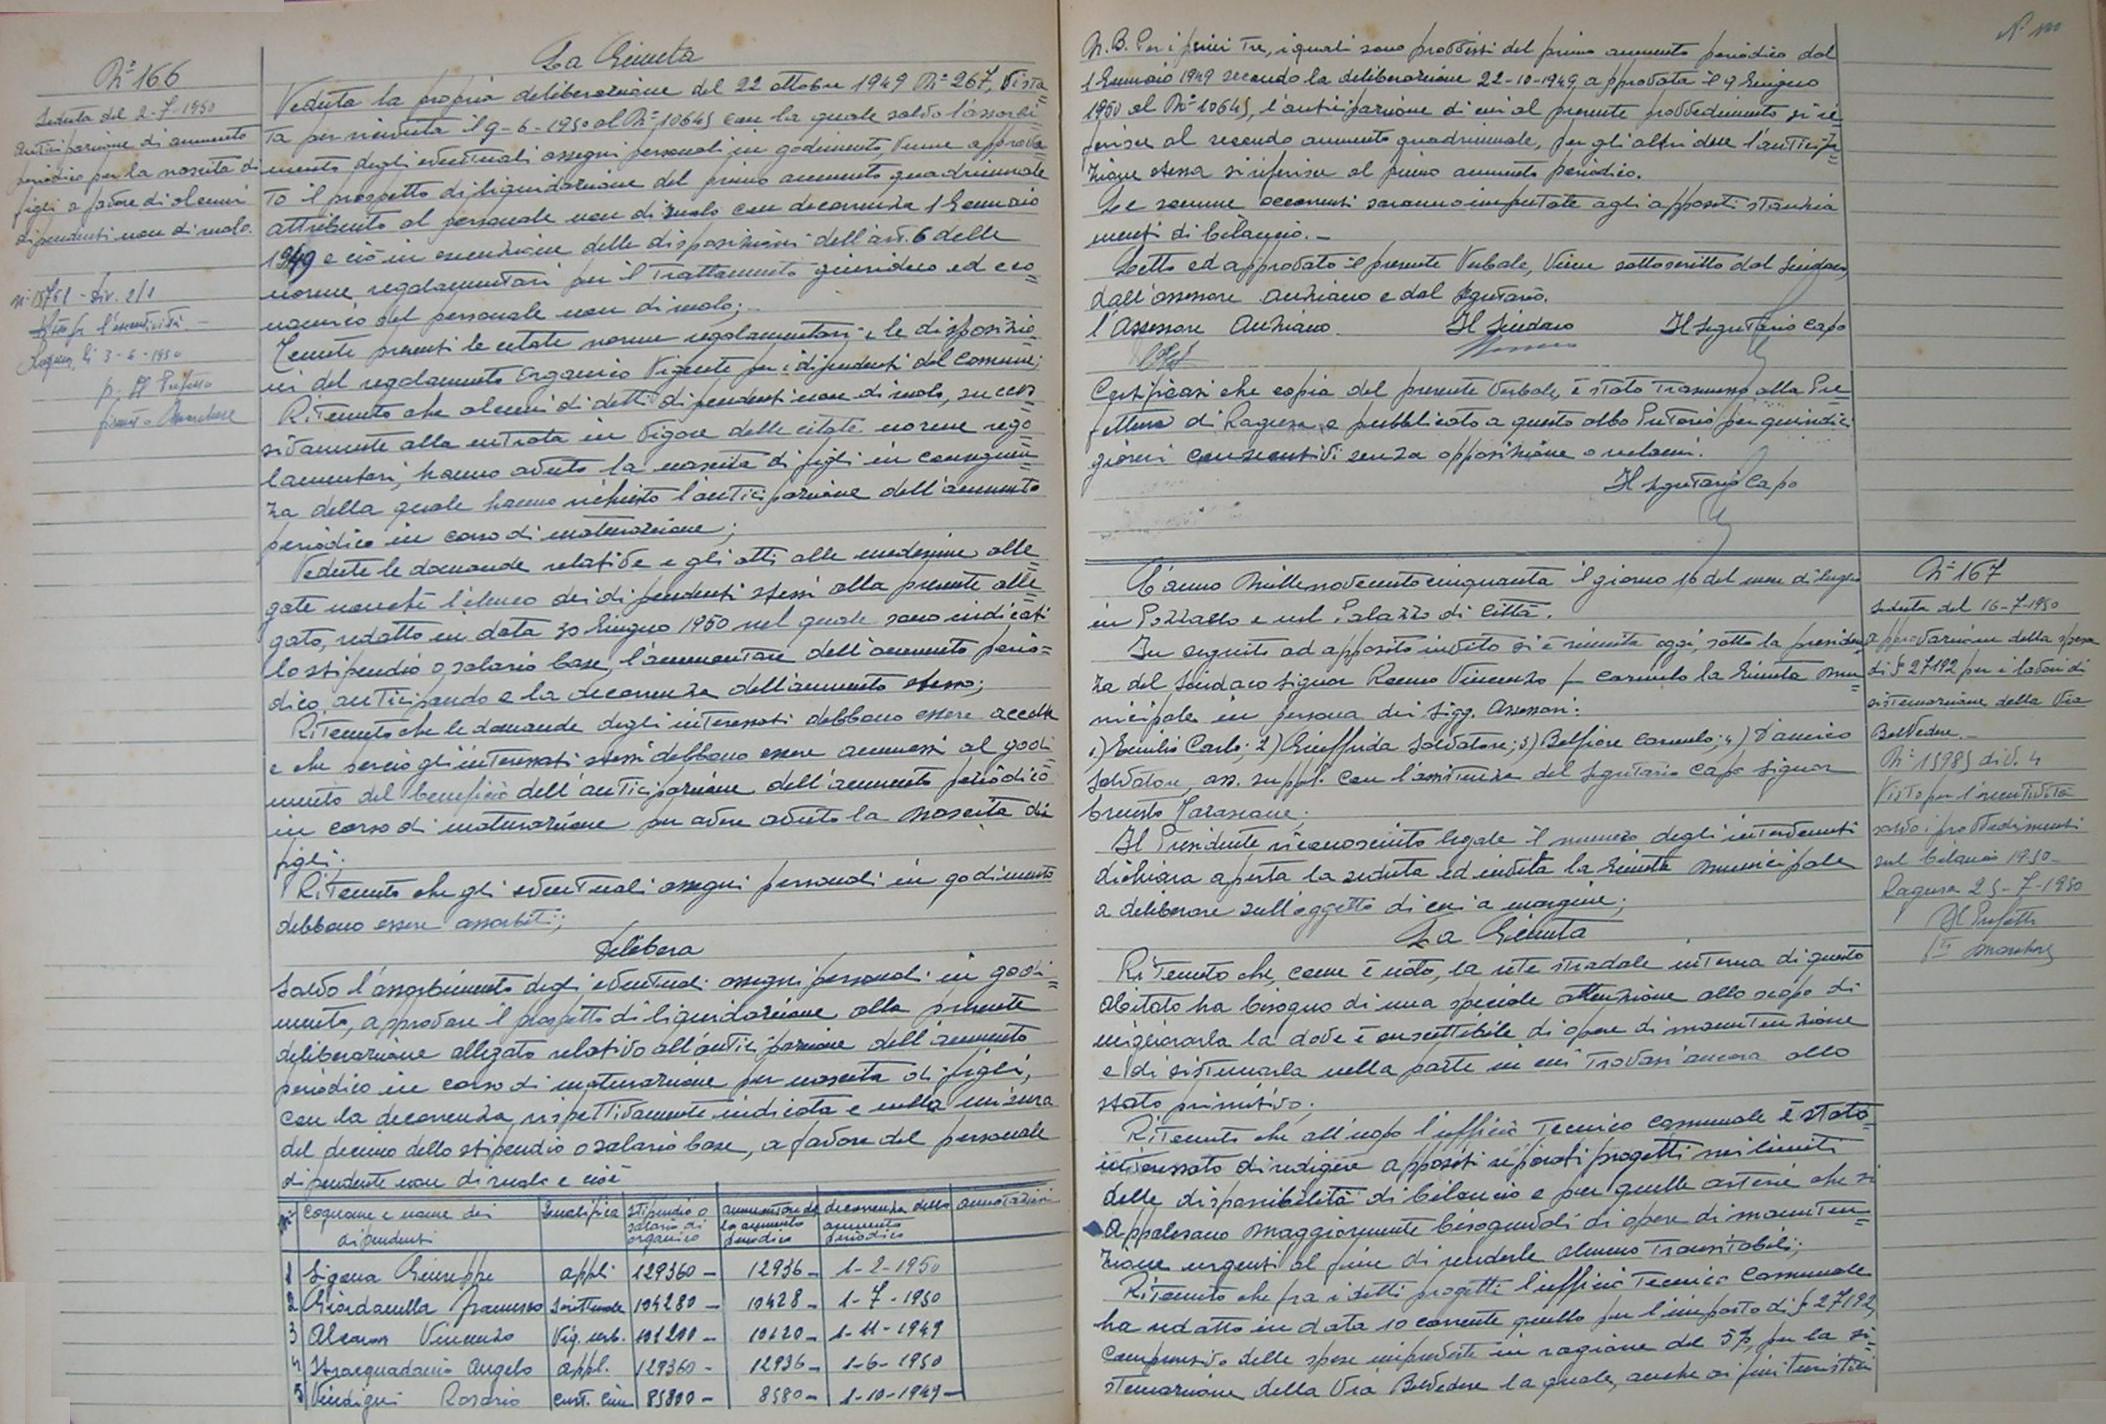 Nº 166
Seduta del 2-7-1950
Anticipazione di aumento
periodico per la nascita di
figli a favore di alcuni
dipendenti non di ruolo.
Div. 2/1
Visto per l'esecutività.
Ragusa, li 3-6-1950
p. Il Prefetto
La Giunta
Veduta la propria deliberazione del 22 ottobre 1949 Nº 267, vista=
ta per ricevuta il 9-6-1950 al Nº 10645 con la quale salvo l'assorbi=
mento degli eventuali assegni personali in godimento, venne approva=
to il prospetto di liquidazione del primo aumento quadriennale
attribuito al personale non di ruolo con decorrenza 1 Gennaio
1949 e ciò in esecuzione delle disposizioni dell'art. 6 delle
norme regolamentari per il trattamento giuridico ed eco=
nomico del personale non di ruolo;
Tenute presenti le citate norme regolamentari e le disposizio=
ni del regolamento organico vigente per i dipendenti del Comune;
Ritenuto che alcuni di detti dipendenti non di ruolo, succes=
sivamente alla entrata in vigore delle citate norme rego=
lamentari, hanno avuto la nascita di figli in conseguen=
za della quale hanno richiesto l'anticipazione dell'aumento
periodico in corso di maturazione;
Vedute le domande relative e gli atti alle medesime alle=
gate nonchè l'elenco dei dipendenti stessi alla presente alle=
gato, redatto in data 30 Giugno 1950 nel quale sono indicati
lo stipendio o salario base, l'ammontare dell'aumento perio=
dico anticipando e la decorrenza dell'aumento stesso;
Ritenuto che le domande degli interessati debbano essere accolte
e che perciò gli interessati stessi debbono essere ammessi al godi=
mento del beneficio dell'anticipazione dell'aumento periodico
in corso di maturazione per avere avuto la nascita di
figli;
Ritenuto che gli eventuali assegni personali in godimento
debbono essere assorbiti;
Delibera
Salvo l'assorbimento degli eventuali assegni personali in godi=
mento, approvare il prospetto di liquidazione alla presente
deliberazione allegato relativo all'anticipazione dell'aumento
periodico in corso di maturazione per nascita di figli,
con la decorrenza rispettivamente indicata e nella misura
del decimo dello stipendio o salario base, a favore del personale
dipendente non di ruolo e cioè
Nº Cognome e nome dei dipendenti Qualifica stipendio o salario di organico ammontare dello aumento periodico decorrenza dello aumento periodico annotazioni
1 Sigona Giuseppe appl. 129360 - 12936 - 1-2-1950
2 Giordanella Francesco Scritturale 104280 - 10428 - 1-7-1950
3 Vincenzo Vig. urb. 101200 - 10120 - 1-11-1949
4 Iracquadanio Angelo appl. 129360 - 12936 - 1-6-1950
5 Vindigni Rosario cust. cim. 85800 - 8580 - 1-10-1949 -
N. B. Per i primi tre, i quali sono provvisti del primo aumento periodico dal
1 Gennaio 1949 secondo la deliberazione 22-10-1949, approvata il 9 Giugno
1950 al Nº 10645, l'anticipazione di cui al presente provvedimento si ri=
ferisce al secondo aumento quadriennale, per gli altri due l'anticipa=
zione stessa si riferisce al primo aumento periodico.
Le somme occorrenti saranno imputate agli appositi stanzia
menti di bilancio.-
Letto ed approvato il presente verbale, viene sottoscritto dal Sindaco,
dall'assessore anziano e dal Segretario.
l'Assessore Anziano Il Sindaco Il Segretario Capo
Certificasi che copia del presente verbale, è stato trasmesso alla Pre=
fettura di Ragusa e pubblicato a questo albo Pretorio per quindici
giorni consecutivi senza opposizione o reclami.
Il Segretario Capo
L'anno millenovecentocinquanta il giorno 16 del mese di luglio
in Pozzallo e nel Palazzo di Città.
In seguito ad apposito invito si è riunita oggi, sotto la presiden=
za del Sindaco Signor Vincenzo fu Carmelo la Giunta Mu=
nicipale in persona dei Sigg. Assessori:
1) Carlo; 2) Giuffrida Salvatore; 3) Belfiore Carmelo; 4) D'amico
Salvatore, ass. suppl. con l'assistenza del Segretario Capo Signor
Ernesto Tarascone.
Il Presidente riconosciuto legale il numero degli intervenuti
dichiara aperta la seduta ed invita la Giunta Municipale
a deliberare sull'oggetto di cui a margine;
La Giunta
Ritenuto che, come è noto, la rete stradale interna di questo
abitato ha bisogno di una speciale attenzione allo scopo di
migliorarla la dove è suscettibile di opere di manutenzione
e di sistemarla nella parte in cui trovasi ancora allo
stato primitivo;
Ritenuto che all'uopo l'ufficio tecnico Comunale è stato
interessato di redigere appositi separati progetti nei limiti
delle disponibilità di bilancio e per quelle arterie che si
appalesano maggiormente bisognevoli di opere di manuten=
zione urgenti al fine di renderle almeno transitabili;
Ritenuto che fra i detti progetti l'ufficio tecnico Comunale
ha redatto in data 10 corrente quello per l'importo di £ 27192,
comprensivo delle spese impreviste in ragione del 5%, per la si=
stemazione della Via Belvedere la quale, anche ai fini turistici
Nº 167
Seduta del 16-7-1950
approvazione della spesa
di £ 27192 per i lavori di
sistemazione della Via
Belvedere.-
Nº 15985 div. 4
Visto per l'esecutività
salvo i provvedimenti
sul bilancio 1950-
Ragusa 25-7-1950
Il Prefetto